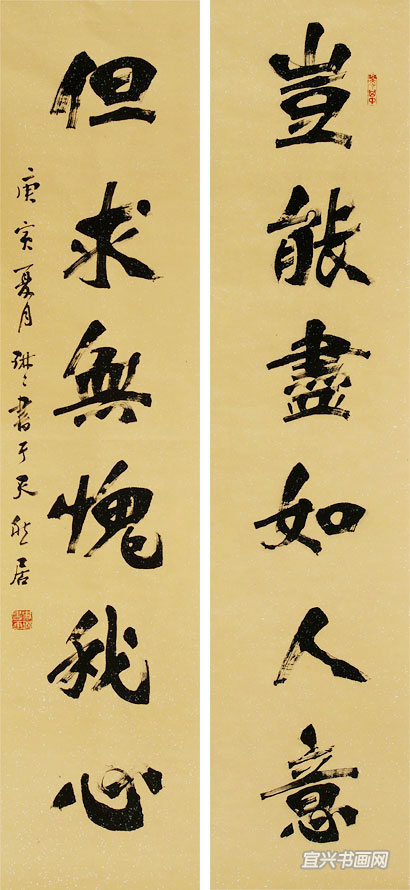 豈能盡如人意
但求無愧我心
庚寅夏月書于天居
宜兴书画网